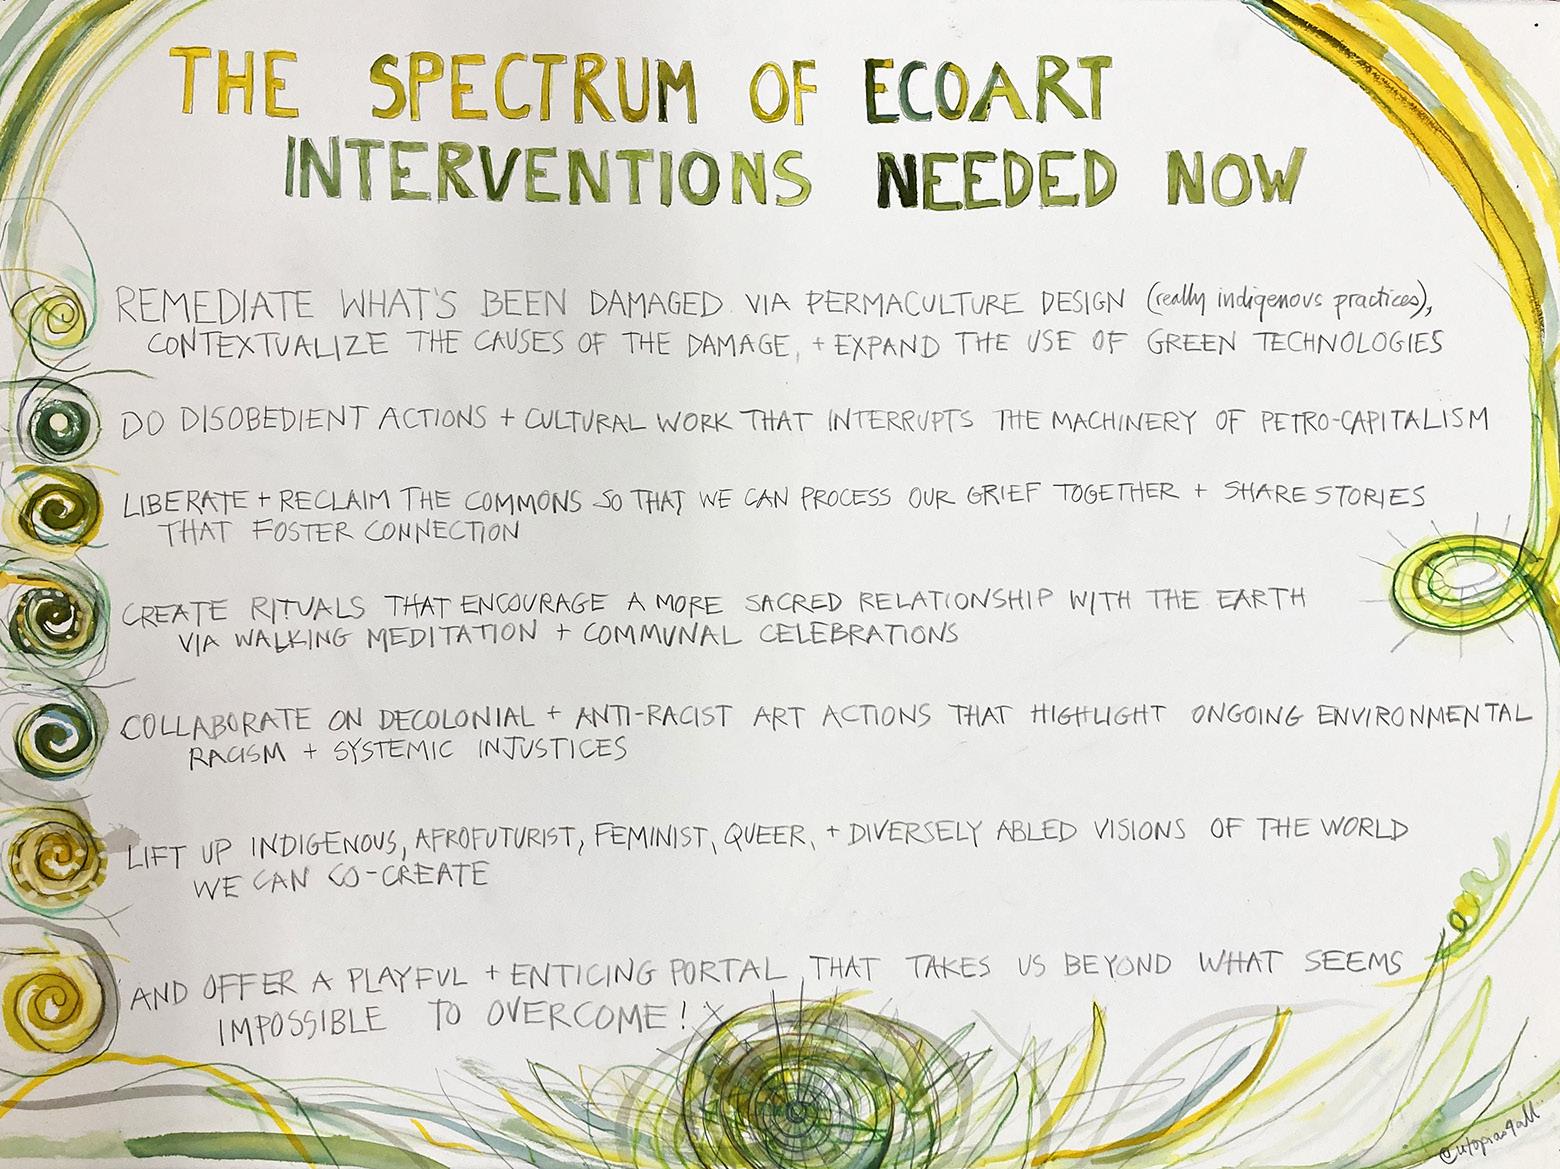 THE SPECTRUM OF ECOART
INTERVENTIONS NEEDED NOW
REMEDIATE WHAT'S BEEN DAMAGED VIA PERMACULTURE DESIGN (really indigenous practices),
CONTEXTUALIZE THE CAUSES OF THE DAMAGE, + EXPAND THE USE OF GREEN TECHNOLOGIES
DO DISOBEDIENT ACTIONS + CULTURAL WORK THAT INTERRUPTS THE MACHINERY OF PETRO-CAPITALISM
LIBERATE + RECLAIM THE COMMONS SO THAT WE CAN PROCESS OUR GRIEF TOGETHER + SHARE STORIES
THAT FOSTER CONNECTION
CREATE RITUALS THAT ENCOURAGE A MORE SACRED RELATIONSHIP WITH THE EARTH
VIA WALKING MEDITATION + COMMUNAL CELEBRATIONS
COLLABORATE ON DECOLONIAL + ANTI-RACIST ART ACTIONS THAT HIGHLIGHT ONGOING ENVIRONMENTAL
RACISM + SYSTEMIC INJUSTICES
LIFT UP INDIGENOUS, AFROFUTURIST, FEMINIST, QUEER, + DIVERSELY ABLED VISIONS OF THE WORLD
WE CAN CO-CREATE
AND OFFER A PLAYFUL + ENTICING PORTAL THAT TAKES US BEYOND WHAT SEEMS
IMPOSSIBLE TO OVERCOME!
@utopias4all